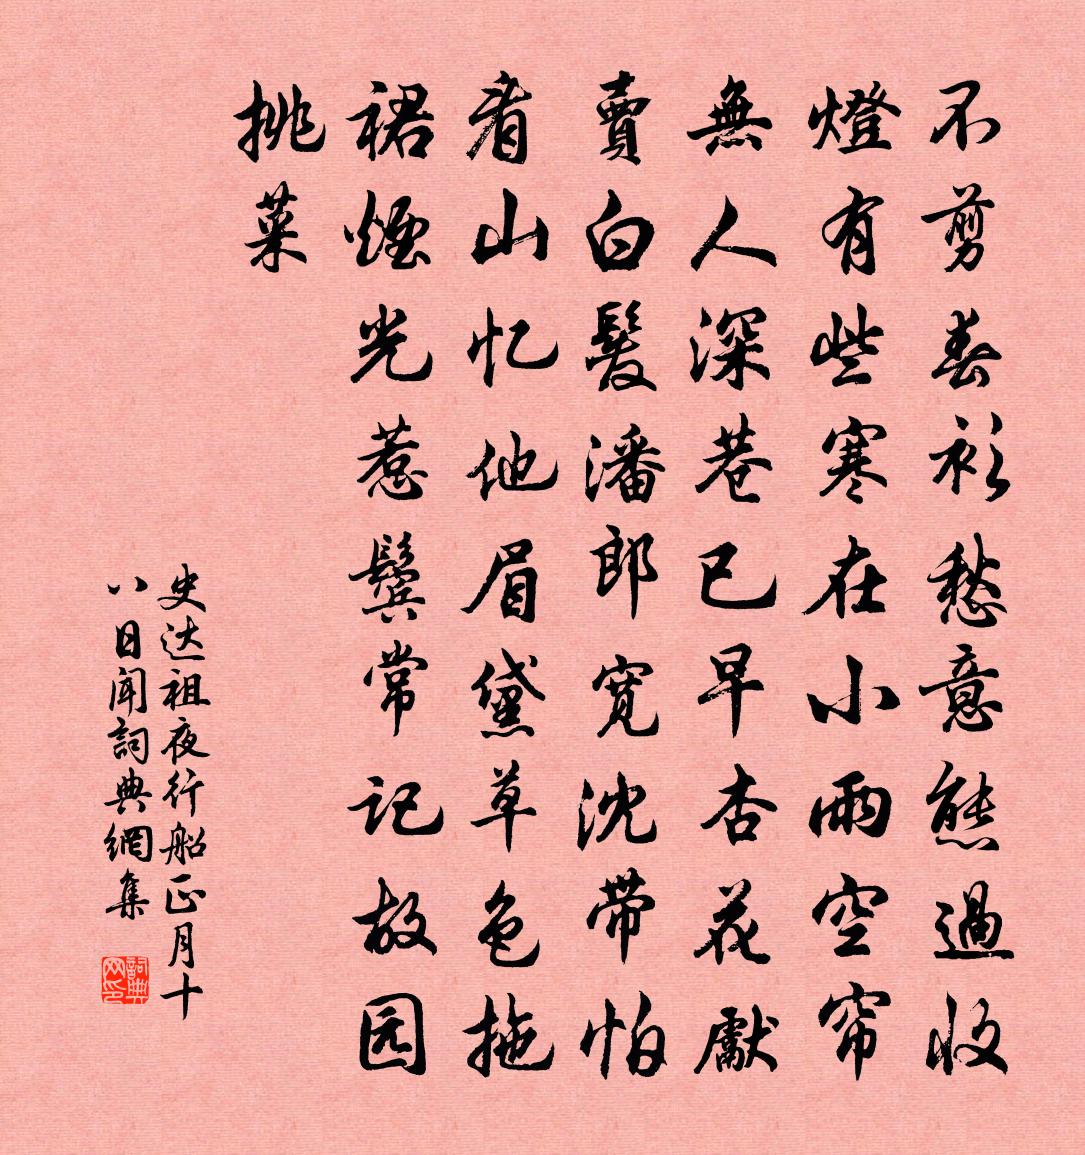 不剪春衫愁意態過收
燈有些寒在小雨空帘
無人深巷已早杏花獻
賣白髮潘郎寬沈帶怕
看山忆他眉黛草色拖
裙煙光惹鬢常记故园
挑菜
史达祖夜行船正月十
八日聞詞典網集
詞典网印